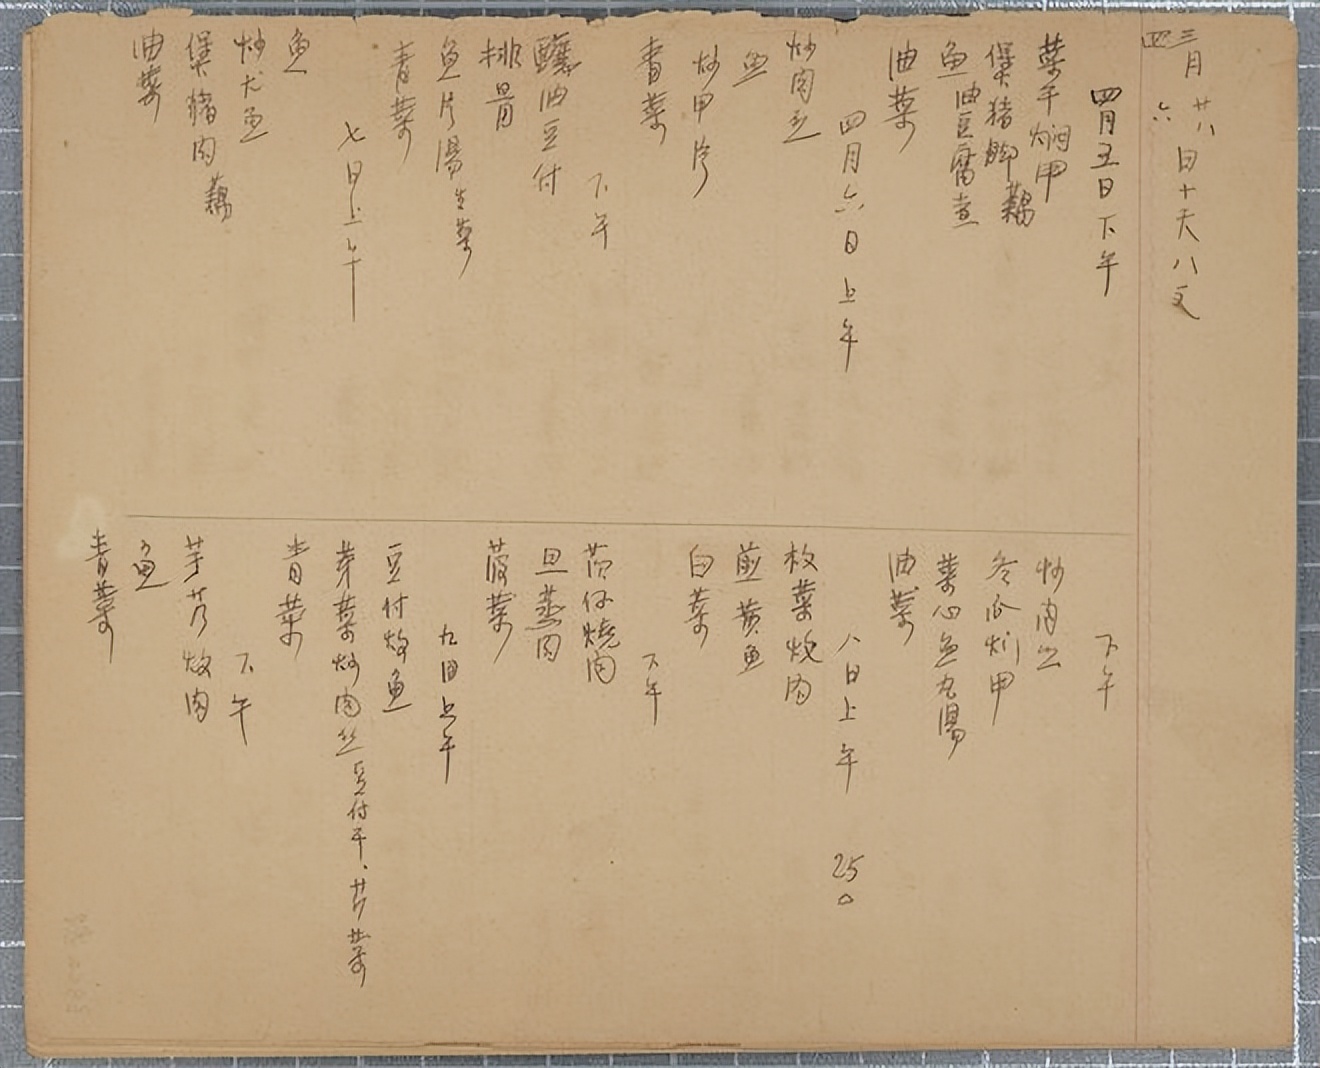 三月廿八日十天八文
四 六
四月五日下午
菜干焖甲
煲猪脚 藕
魚 油豆腐煮
油菜
四月六日上午
炒肉
魚
炒甲片
青菜
下午
釀油豆付
排骨
魚片湯 生菜
青菜
七日上午
魚
炒尤魚
煲猪肉 藕
油菜
下午
炒肉
冬瓜 甲
菜心魚丸湯
油菜
八日上午 250
枚菜炆肉
煎黄魚
白菜
下午
茨仔燒肉
旦蒸肉
菠菜
九日上午
豆付炆魚
芽菜炒肉丝 豆付干、芹菜
青菜
下午
芋艿炆肉
魚
青菜